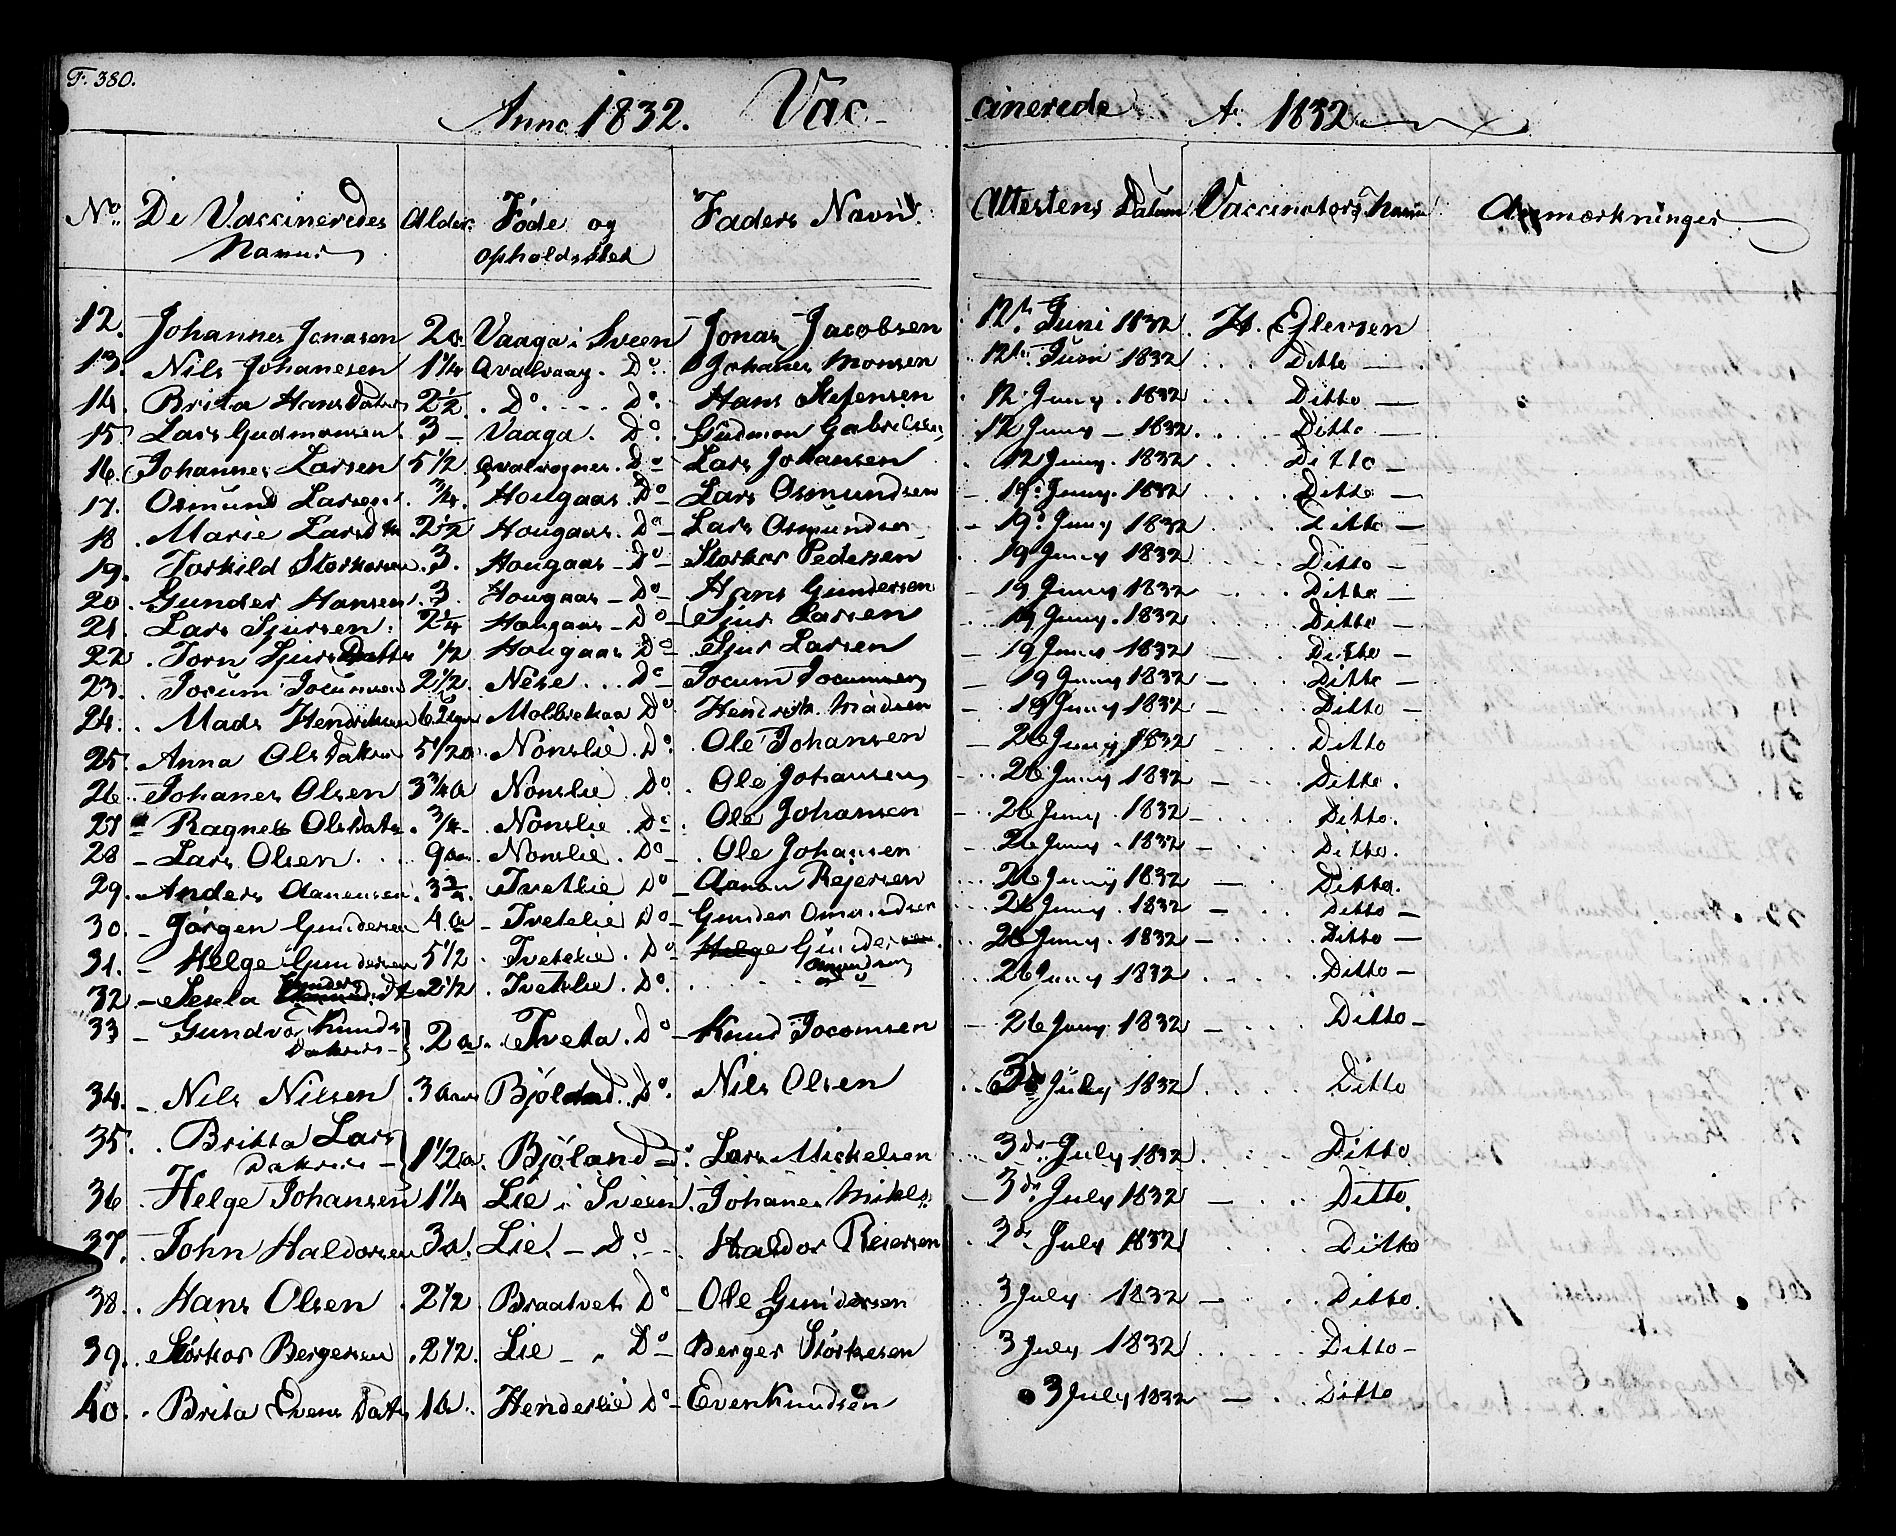 F. 380.
Anno 1832. Vaccinerede A. 1832
No. De Vaccineredes Navne Alder. Føde og opholdssted Faders Navn Attestens Datum Vaccinators Navn Anmærkninger
12. Johannes Jonasen 2a Vaaga i Sveen Jonas Jacobsen 12te Juni 1832 H. Ejlersen
13. Nils Johanesen 1 1/4 Qvalvaag. Do. Johanes Monsen 12te Juni 1832 Ditto
14. Brita Hans Datter 2 1/2 Do. Do. Hans Stefensen 12 Juny. 1832 Ditto
15 Lars Gudmonsen 3 Vaaga. Do. Gudmon Gabrielsen 12 Juny 1832. Ditto
16. Johannes Larsen 5 1/2 Do Lars Johansen 12 Juny. 1832 Ditto
17. Osmund Larsen 3/4. Hougaas. Do Lars Osmundsen 19 Juny. 1832 Ditto
18. Marie Larsdtr 2 1/2 Hougaas. Do Lars Osmundsen 19 Juny 1832 Ditto
19. Torkild Storkersen 3. Hougaas Do Storker Pedersen 19 Juny 1832 Ditto
20. Gunder Hansen 3 Hougaas Do Hans Gundersen 19 Juny 1832 Ditto
21. Lars Sjursen 2 1/4 Hougaas Do Sjur Larsen 19 Juny. 1832 Ditto
22. Torn Sjurs Datter 1/2 Hougaas Do Sjur Larsen 19 Juny 1832 Ditto
23. Jocum Jocumsen 2 1/2. Nese Do Jocum Jocumsen 19 Juny 1832 Ditto
24. Mads Hendriksen 6 Do Hendrik Madsen 19 Juny 1832 Ditto
25 Anna Ols Datter 5 1/2a Nonslie. Do. Ole Johansen 26 Juny 1832 Ditto
26. Johanes Olsen 3 3/4a Nonslie Do. Ole Johansen 26 Juny 1832 Ditto.
27 Ragnele Olsdatr. 3/4 Nonslie. Do. Ole Johansen 26 Juny. 1832 Ditto.
28 Lars Olsen 9 Nonslie. Do Ole Johansen 26 Juny. 1832 Ditto.
29. Anders Aanensen. 3 Tvetlie Do Aanon Rejersen 26 Juny 1832 Ditto.
30. Jørgen Gundersen 4.a Tvetelie. Do Gunder Omundsen 26 Juny. 1832 Ditto
31. Helge Gundersen 5 1/2 Tvetelie. Do Helge Gunder Omundsen 26 Juny. 1832 Ditto
32 Sesela Gunders 2 1/2 Tvetelie. Do. Do 26 Juny 1832 Ditto
33 Gundvor Knuds Datter 2a. Tveta. Do Knud Jocomsen 26 Juny 1832 Ditto
34. Nils Nilsen 3 Bjøland. Do. Nils Olsen 3 July 1832 Ditto
35. Britta Lars Datter 1 1/2a. Bjøland Do. Lars Mickelsen 3de July 1832 Ditto
36 Helge Johansen 1 1/4 Lie i Sveen. Johanes Mikels. 3de July 1832 Ditto.
37. John Haldorsen 3a. Lie. Do. Haldor Reiersen 3de July 1832 Ditto
38. Hans Olsen 2 1/2 Braatvet Do Ole Gundersen 3 July 1832 Ditto.
39. Størkor Bergersen 2 1/2. Lie Do Berger Størkersen 3 July 1832 Ditto
40. Brita Evens Datter 1a. Henderlie Do Even Knudsen 3 July 1832 Ditto